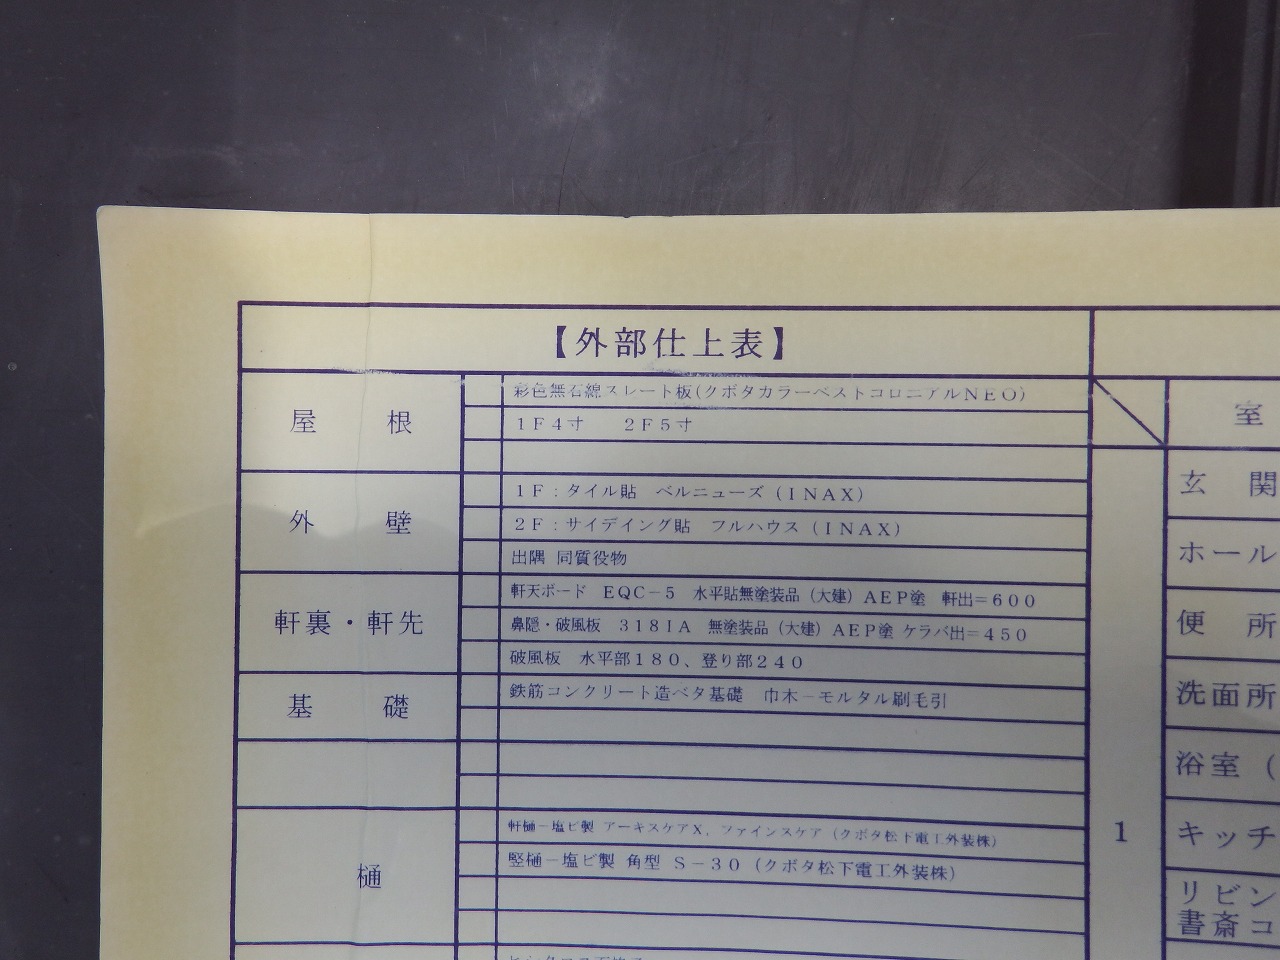 【外部仕上表】
屋 根
彩色無石綿スレート板(クボタカラーベストコロニアルNEO)
1F4寸 2F5寸
外 壁
1F:タイル貼 ベルニューズ(INAX)
2F:サイデイング貼 フルハウス(INAX)
出隅 同質役物
軒裏・軒先
軒天ボード EQC-5 水平貼無塗装品(大建)AEP塗 軒出=600
鼻隠・破風板 318IA 無塗装品(大建)AEP塗 ケラバ出=450
破風板 水平部180、登り部240
基 礎
鉄筋コンクリート造ベタ基礎 巾木-モルタル刷毛引
樋
軒樋-塩ビ製 アーキスケアX、ファインスケア(クボタ松下電工外装株)
竪樋-塩ビ製 角型 S-30(クボタ松下電工外装株)
室
1
玄 関
ホール
便 所
洗面所
浴室(
キッチ
リビン
書斎コ